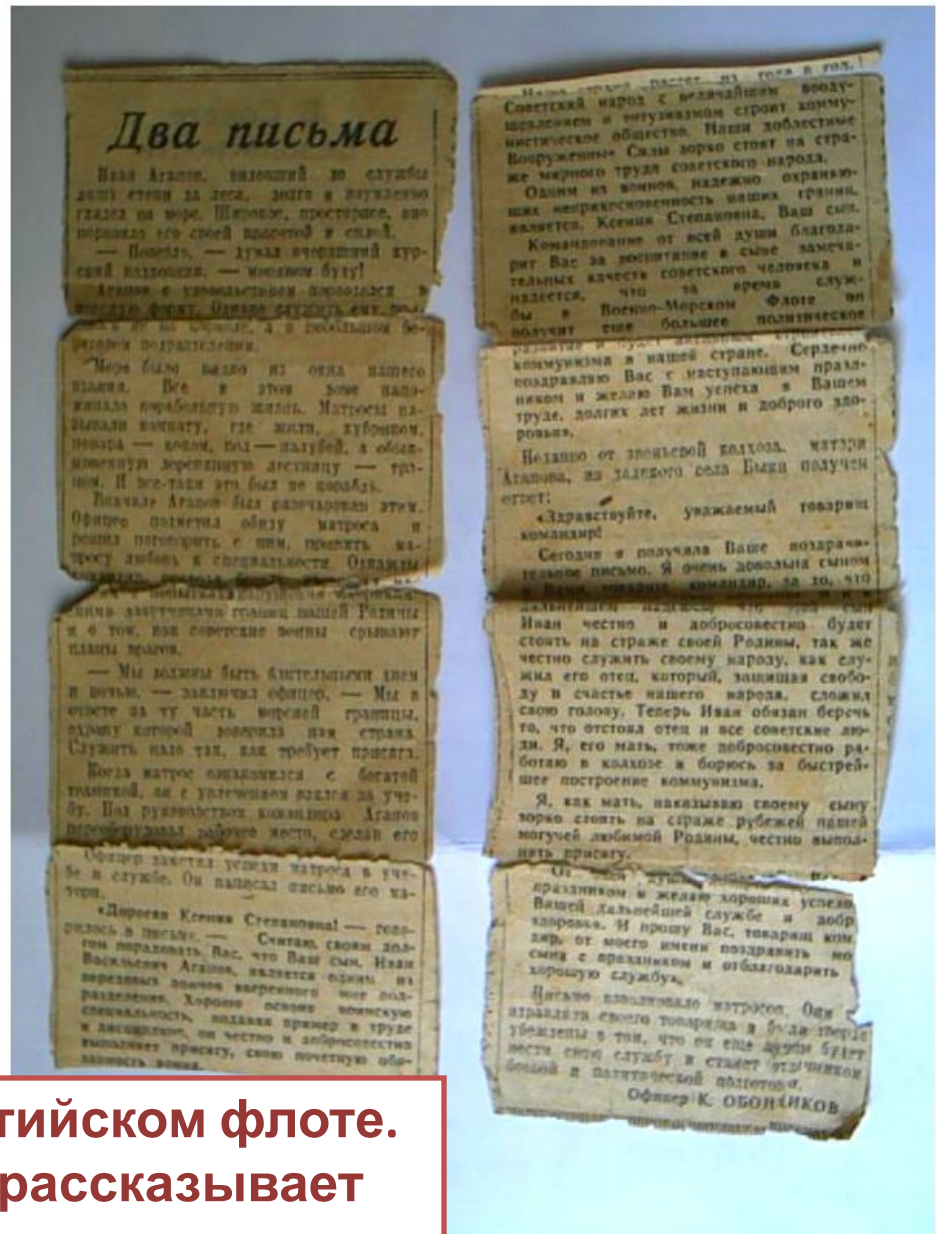 Два письма
Иван Агапов, видевший до службы
лишь степи да леса, долго и изумленно
глядел на море. Широкое, просторное, оно
поразило его своей красотой и силой.
— Повезло, — думал вчерашний кур-
ский колхозник, — моряком буду!
Агапов с удовольствием переоделся в
морскую форму. Однако служить ему
не на корабле, а в небольшом бе-
реговом подразделении.
Море было видно из окна нашего
здания. Все в этом доме напо-
минало корабельную жизнь. Матросы на-
зывали комнату, где жили, кубриком,
повара — коком, пол — палубой, а обык-
новенную деревянную лестницу — тра-
пом. И все-таки это был не корабль.
Вначале Агапов был разочарован этим.
Офицер заметил обиду матроса и
решил поговорить с ним, привить ма-
тросу любовь к специальности. Однажды
границ нашей Родины
и о том, как советские воины срывают
планы врагов.
— Мы должны быть бдительными днем
и ночью, — заключил офицер. — Мы в
ответе за ту часть морской границы,
охрану которой доверила нам страна.
Служить надо так, как требует присяга.
Когда матрос ознакомился с богатой
техникой, он с увлечением взялся за уче-
бу. Под руководством командира Агапов
переоборудовал рабочее место, сделав его
Офицер заметил успехи матроса в уче-
бе и службе. Он написал письмо его ма-
тери.
«Дорогая Ксения Степановна! — гово-
рилось в письме. — Считаю своим дол-
гом порадовать Вас, что Ваш сын, Иван
Васильевич Агапов, является одним из
передовых воинов вверенного мне под-
разделения. Хорошо освоив воинскую
специальность, подавая пример в труде
и дисциплине, он честно и добросовестно
выполняет присягу, свою почетную обя-
занность воина.
Наша страна растет из года в год.
Советский народ с величайшим вооду-
шевлением и энтузиазмом строит комму-
нистическое общество. Наши доблестные
Вооруженные Силы зорко стоят на стра-
же мирного труда советского народа.
Одним из воинов, надежно охраняю-
щих неприкосновенность наших границ,
является, Ксения Степановна, Ваш сын.
Командование от всей души благода-
рит Вас за воспитание в сыне замеча-
тельных качеств советского человека и
надеется, что за время служ-
бы в Военно-Морском Флоте он
получит еще большее политическое
развитие и будет активным
коммунизма в нашей стране. Сердечно
поздравляю Вас с наступающим празд-
ником и желаю Вам успеха в Вашем
труде, долгих лет жизни и доброго здо-
ровья».
Недавно от звеньевой колхоза, матери
Агапова, из далекого села Быки получен
ответ:
«Здравствуйте, уважаемый товарищ
командир!
Сегодня я получила Ваше поздрави-
тельное письмо. Я очень довольна сыном
и Вами, товарищ командир, за то, что
дальнейшем надеюсь, что мой сын
Иван честно и добросовестно будет
стоять на страже своей Родины, так же
честно служить своему народу, как слу-
жил его отец, который, защищая свобо-
ду и счастье нашего народа, сложил
свою голову. Теперь Иван обязан беречь
то, что отстоял отец и все советские лю-
ди. Я, его мать, тоже добросовестно ра-
ботаю в колхозе и борюсь за быстрей-
шее построение коммунизма.
Я, как мать, наказываю своему сыну
зорко стоять на страже рубежей нашей
могучей любимой Родины, честно выпол-
нять присягу.
От всей души
праздником и желаю хороших успехо
Вашей дальнейшей службе и добр
здоровья. И прошу Вас, товарищ ком
дир, от моего имени поздравить мо
сына с праздником и отблагодарить
хорошую службу».
Письмо взволновало матросов. Они
здравили своего товарища и были твердо
убеждены в том, что он еще лучше будет
нести свою службу и станет отличником
боевой и политической подготовки.
Офицер К. ОБОЙЩИКОВ
тийском флоте.
рассказывает